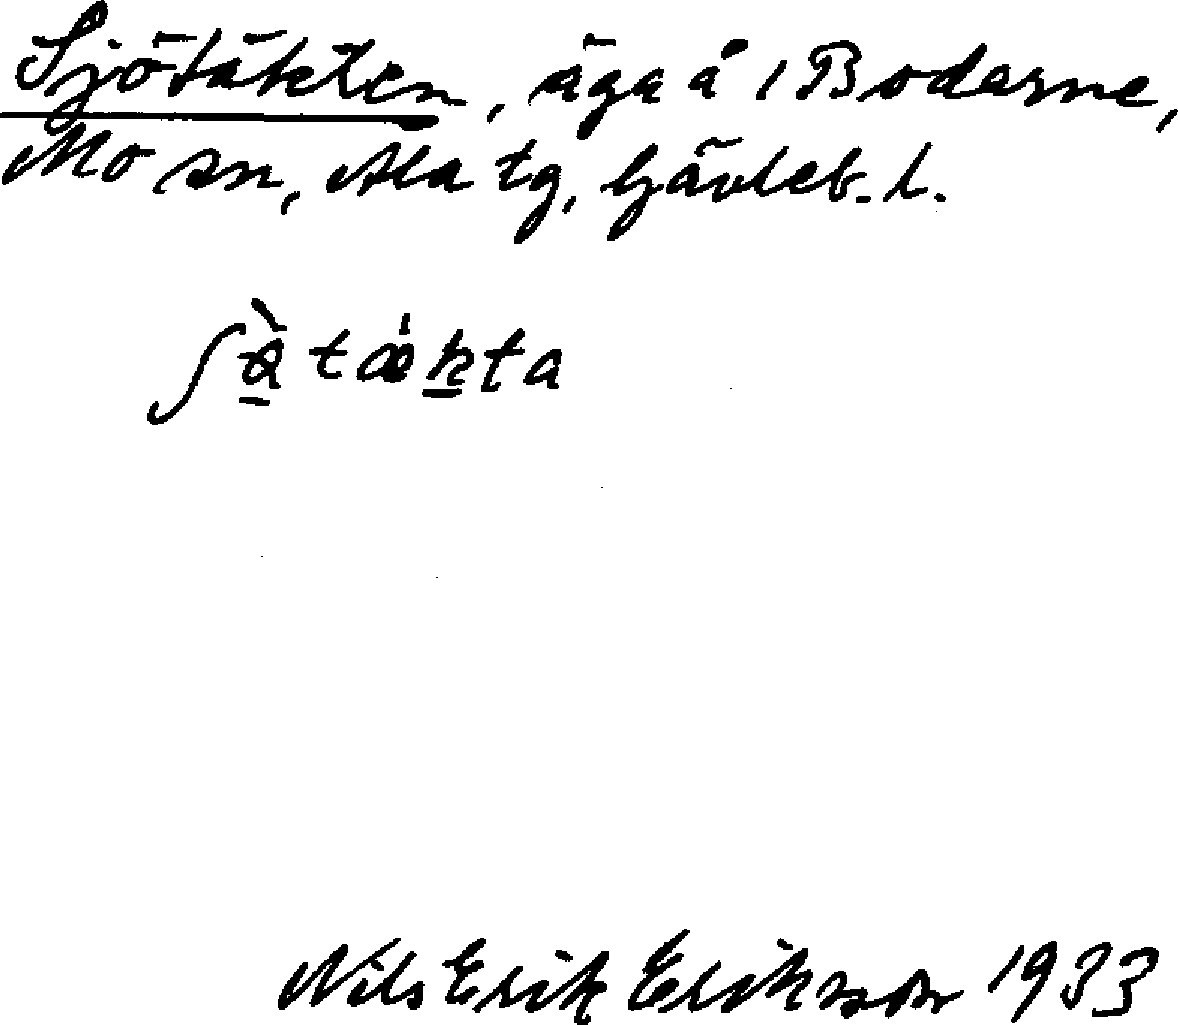 Sjötäkten, äga å 1 Boderne,
Mo sn, Ala tg, Gävleb. l.
Nils Erik Erikson 1933